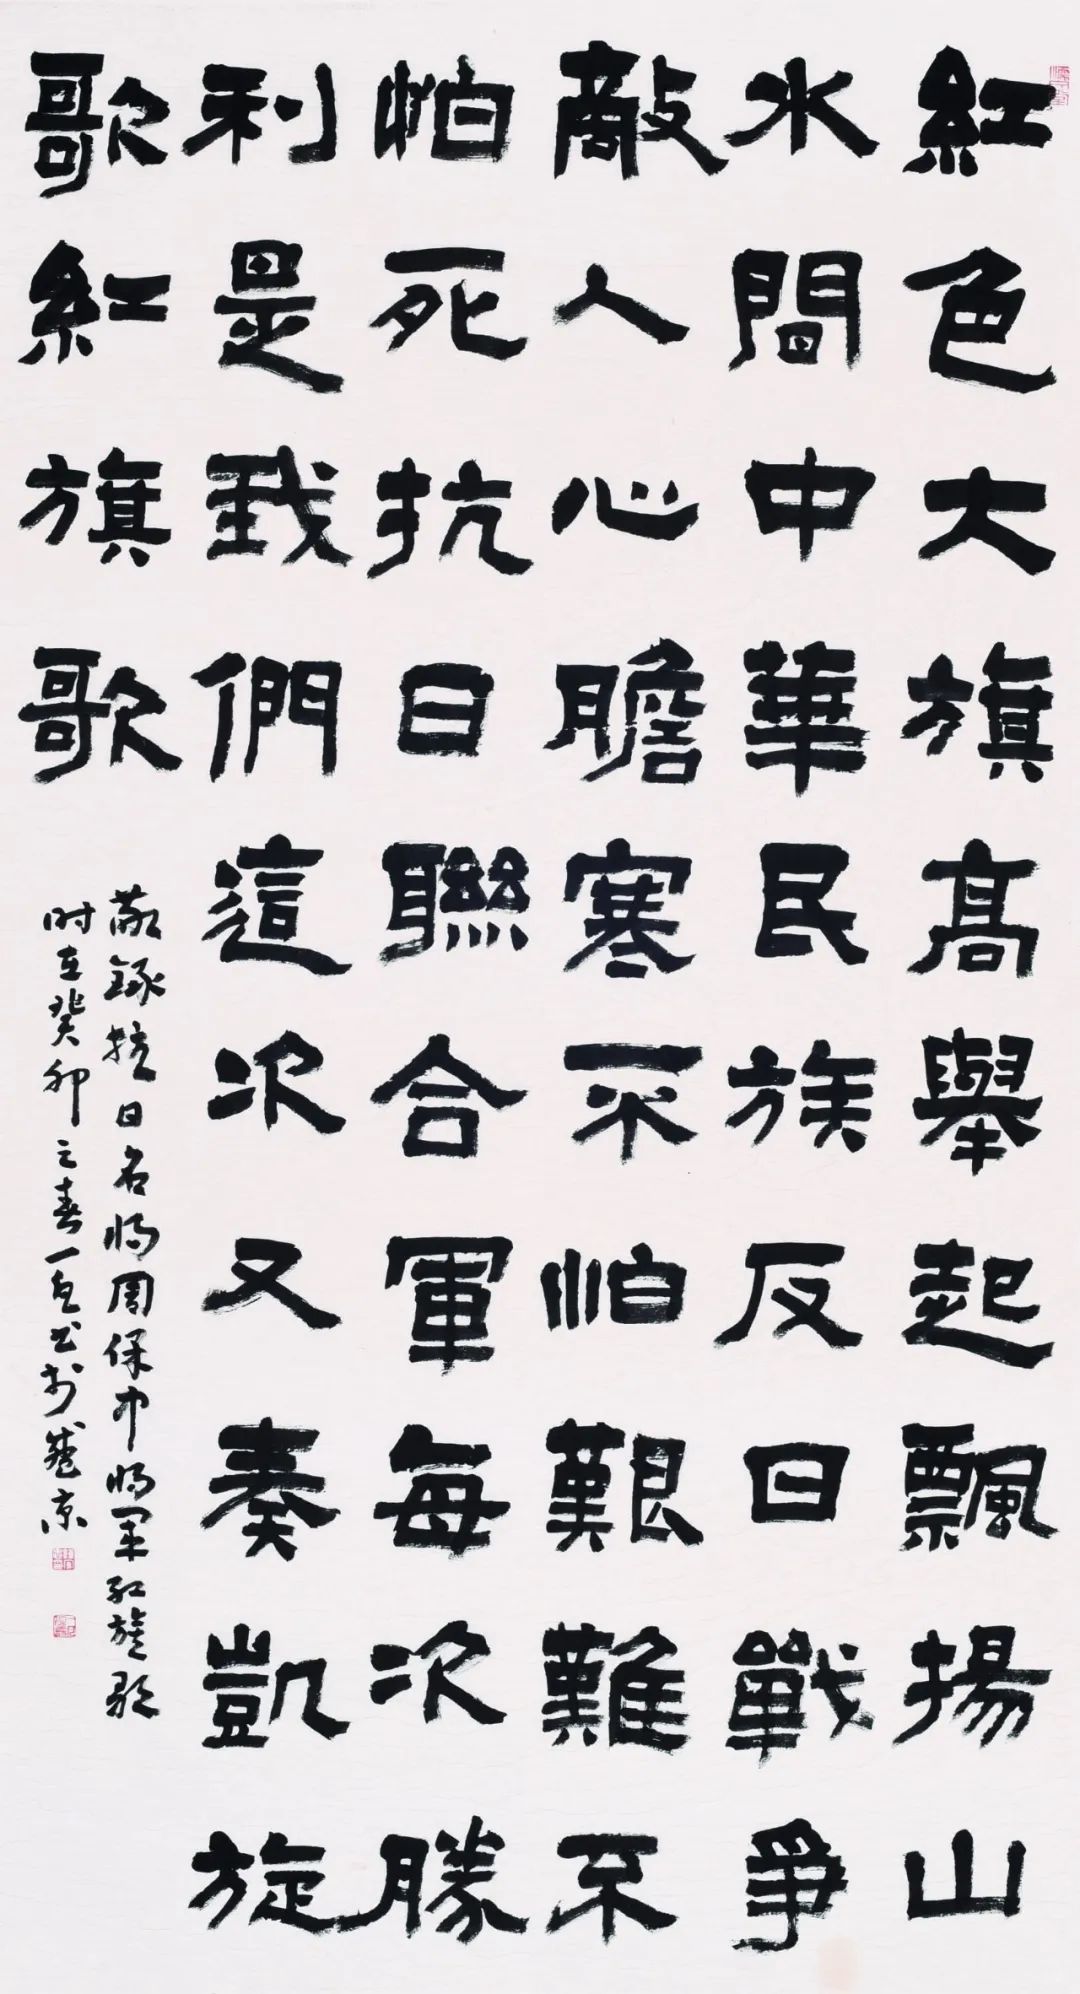 紅色大旗髙舉起飄揚山
水間中華民族反日戰爭
敵人心膽寒不怕艱難不
怕死抗日聯合軍每次勝
利是我們這次又奏凱旋
歌紅旗歌
敬録抗日名将周保中将军红旗歌
时在癸卯之春一书於燕京